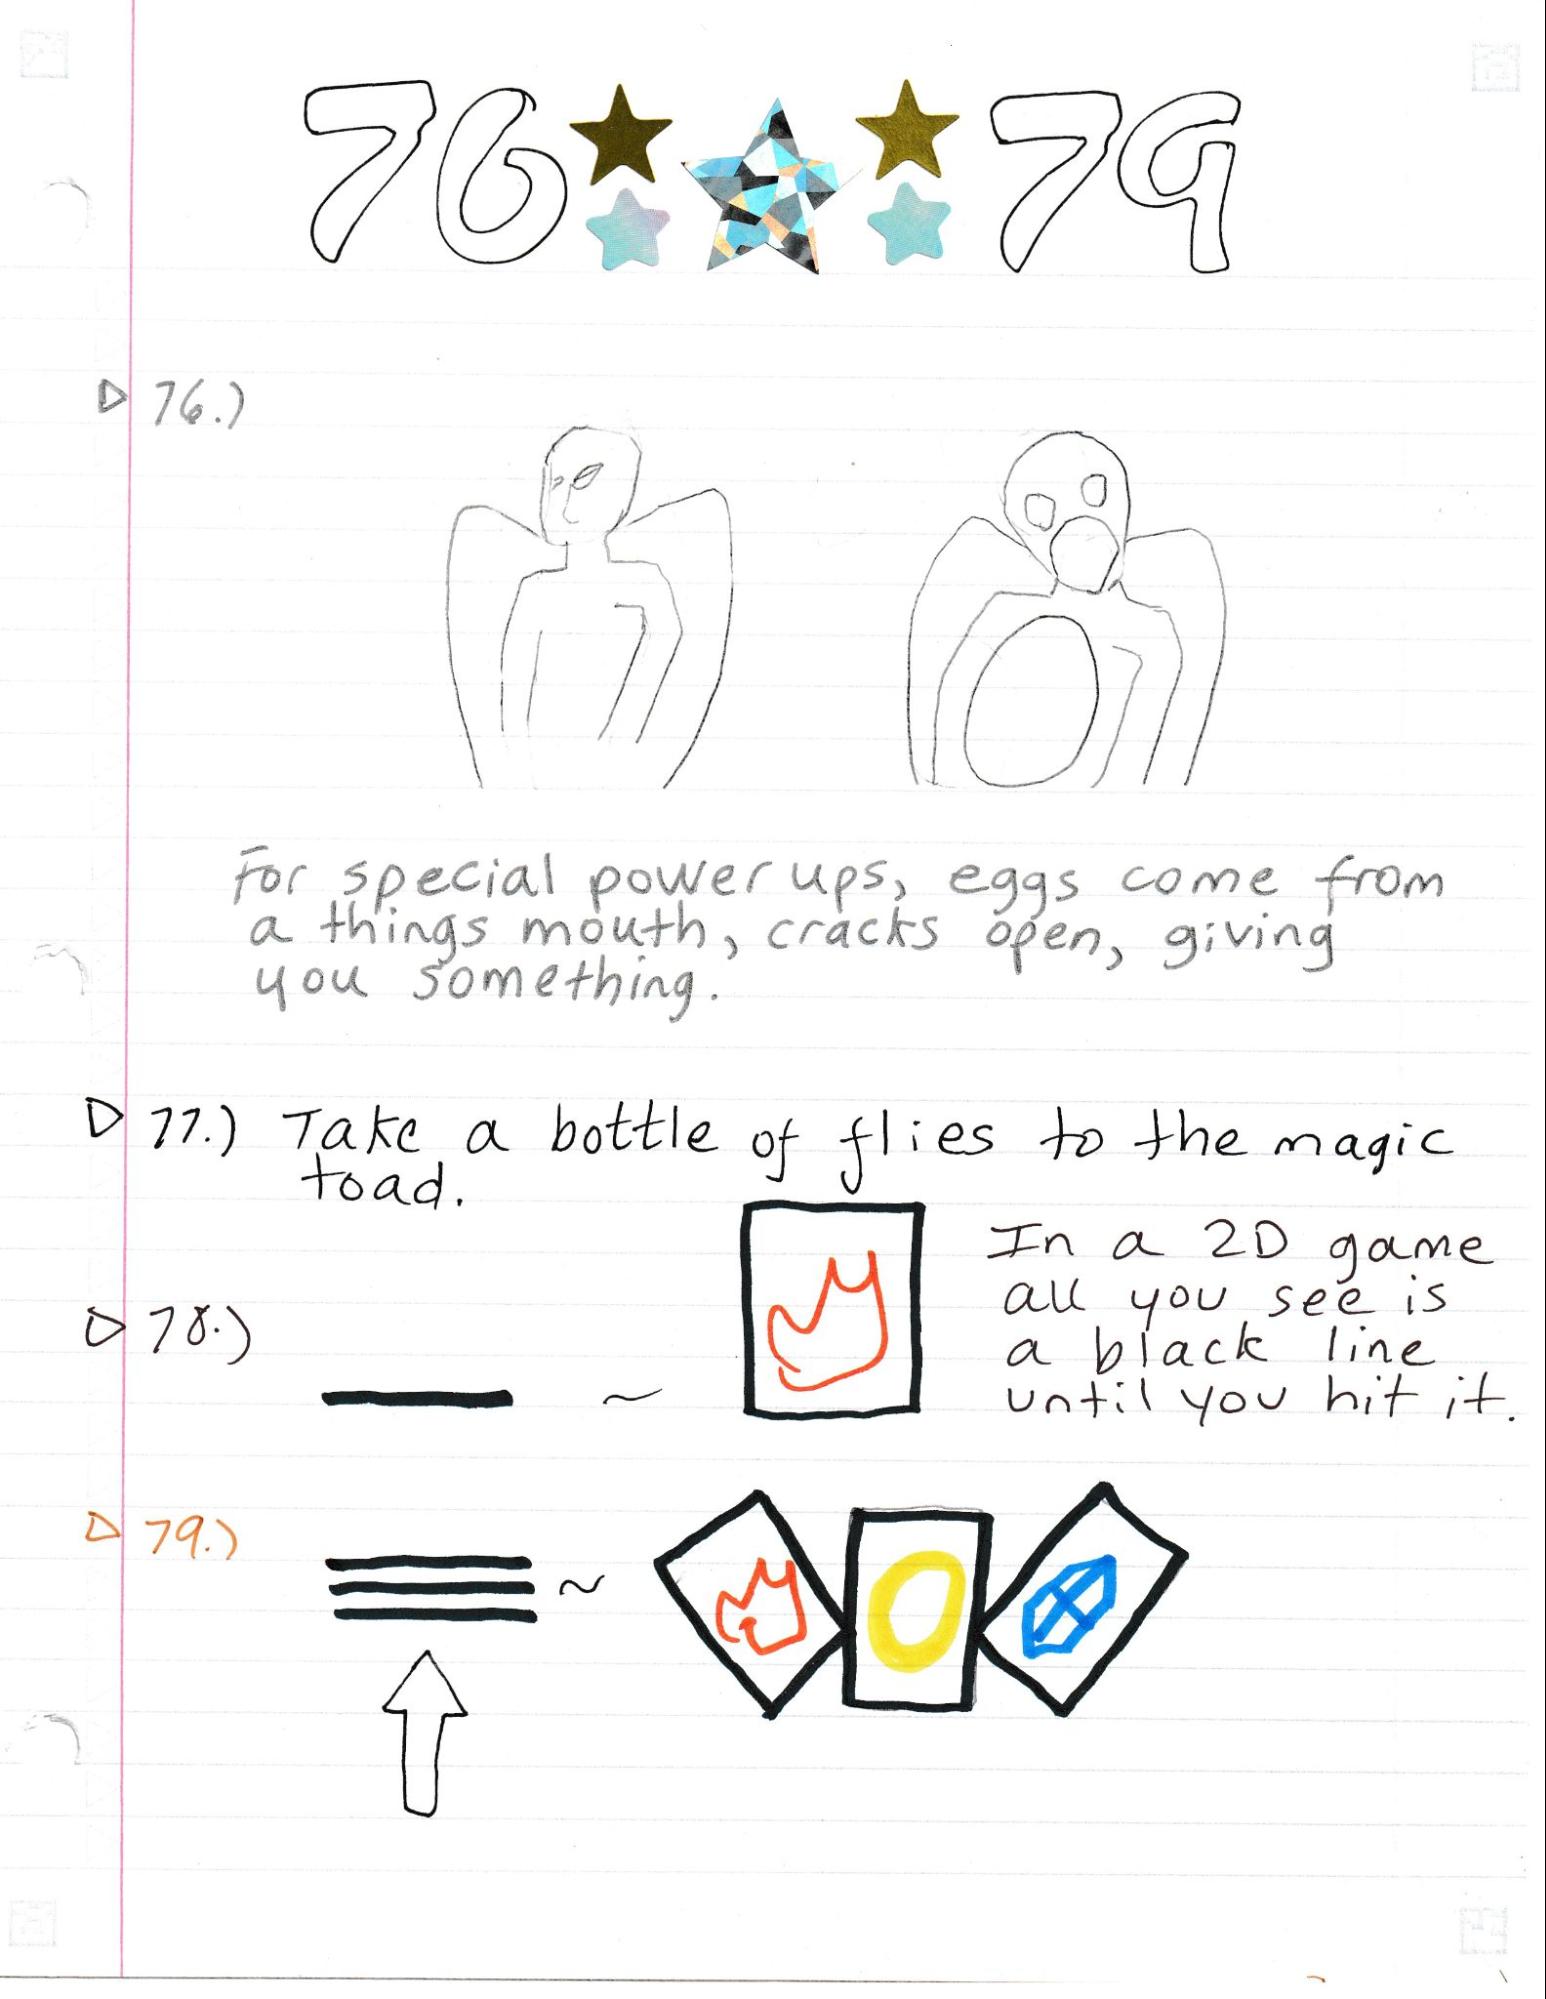 76 79
76.)
For special power ups, eggs come from
a things mouth, cracks open, giving
you something.
77.) Take a bottle of flies to the magic
toad.
78.)
In a 2D game
all you see is
a black line
until you hit it.
79.)